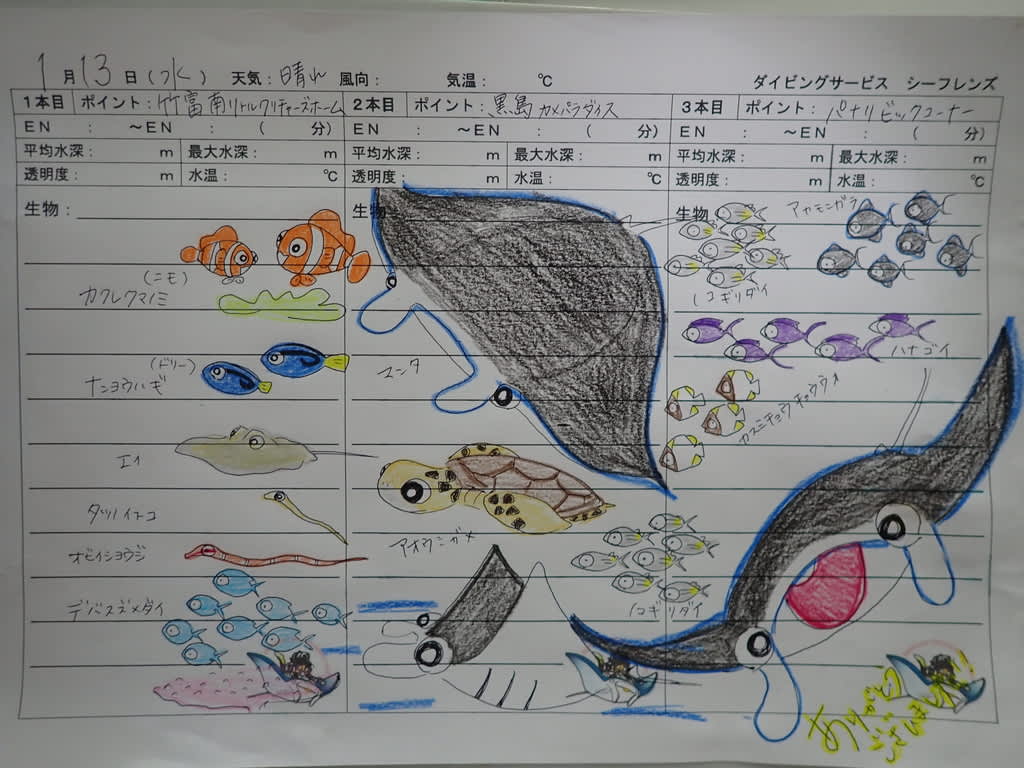 1月13日(水) 天気:晴れ 風向: 気温: ℃
ダイビングサービス シーフレンズ
1本目 ポイント:竹富南リトルクリチャーズホーム
EN : ～EN : ( 分)
平均水深: m 最大水深: m
透明度: m 水温: ℃
生物:
(ニモ)
カクレクマノミ
(ドリー)
ナンヨウハギ
エイ
タツノイトコ
オビイシヨウジ
デバスズメダイ
2本目 ポイント:黒島カメパラダイス
EN : ～EN : ( 分)
平均水深: m 最大水深: m
透明度: m 水温: ℃
生物
マンタ
アオウミガメ
ノコギリダイ
3本目 ポイント:パナリビックコーナー
EN : ～EN : ( 分)
平均水深: m 最大水深: m
透明度: m 水温: ℃
生物
アカモンガラ
ノコギリダイ
ハナゴイ
カスミチョウチョウウオ
ありがとう
ございました